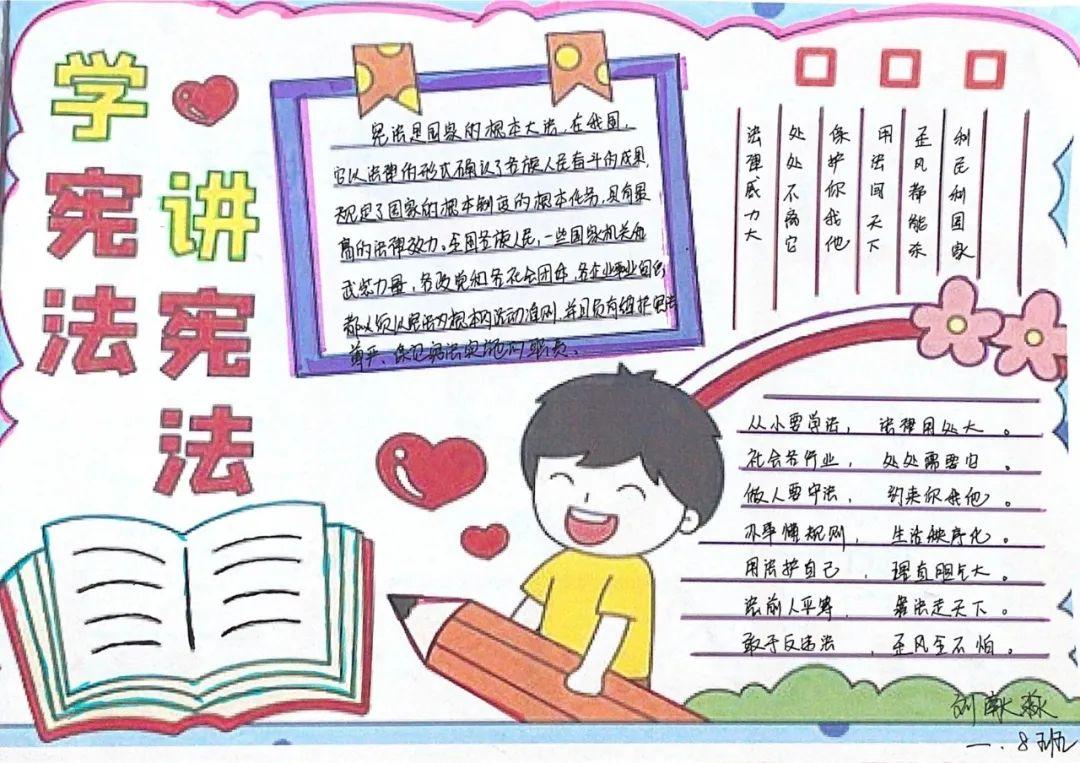 学宪法
讲宪法
宪法是国家的根本大法，在我国，
它以法律的形式确认了各族人民奋斗的成果，
规定了国家的根本制度的根本任务，具有最
高的法律效力。全国各族人民，一些国家机关和
武装力量，各政党和各社会团体，各企业事业
都必须以宪法为根本的活动准则，并且负有维护宪法
尊严、保证宪法实施的职责、
法律威力大
处处不离它
保护你我他
用法问天下
歪风都能杀
利民利国家
从小要学法，法律用处大。
社会各行业，处处需要它。
做人要守法，约束你我他。
办事懂规则，生活秩序化。
用法护自己，理直胆气大。
法前人平等，靠法走天下。
敢于反违法，歪风全不怕。
刘
一.8班